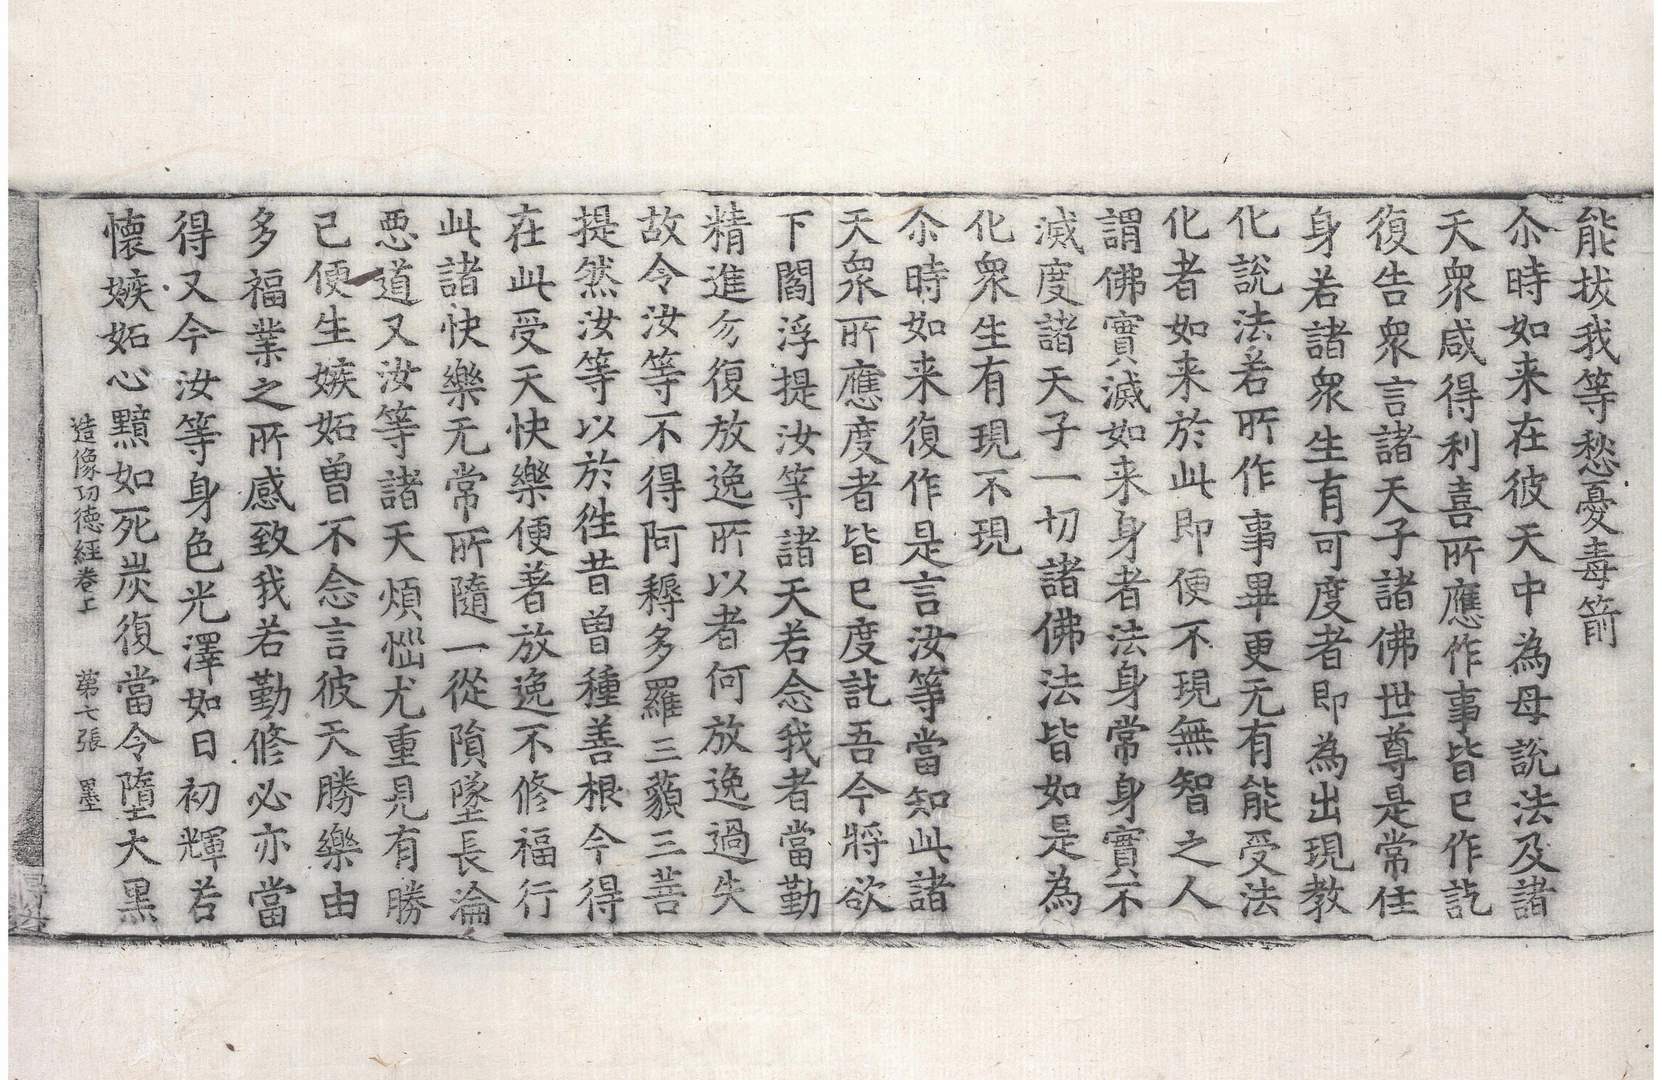 能拔我等愁憂毒箭
尒時如来在彼天中為母說法及諸
天衆咸得利喜所應作事皆已作訖
復告衆言諸天子諸佛世尊是常住
身若諸衆生有可度者即為出現教
化說法若所作事畢更无有能受法
化者如来於此即便不現無智之人
謂佛實滅如来身者法身常身實不
滅度諸天子一切諸佛法皆如是為
化衆生有現不現
尒時如来復作是言汝等當知此諸
天衆所應度者皆已度訖吾今將欲
下閻浮提汝等諸天若念我者當勤
精進勿復放逸所以者何放逸過失
故令汝等不得阿耨多羅三藐三菩
提然汝等以於徃昔曾種善根今得
在此受天快樂便著放逸不修福行
此諸快樂无常所隨一從隕墜長淪
悪道又汝等諸天煩惱尤重見有勝
己便生嫉妬曾不念言彼天勝樂由
多福業之所感致我若勤修必亦當
得又今汝等身色光澤如日初輝若
懷嫉妬心黯如死炭復當令墮大黑
造像功徳經卷上 第七張 墨